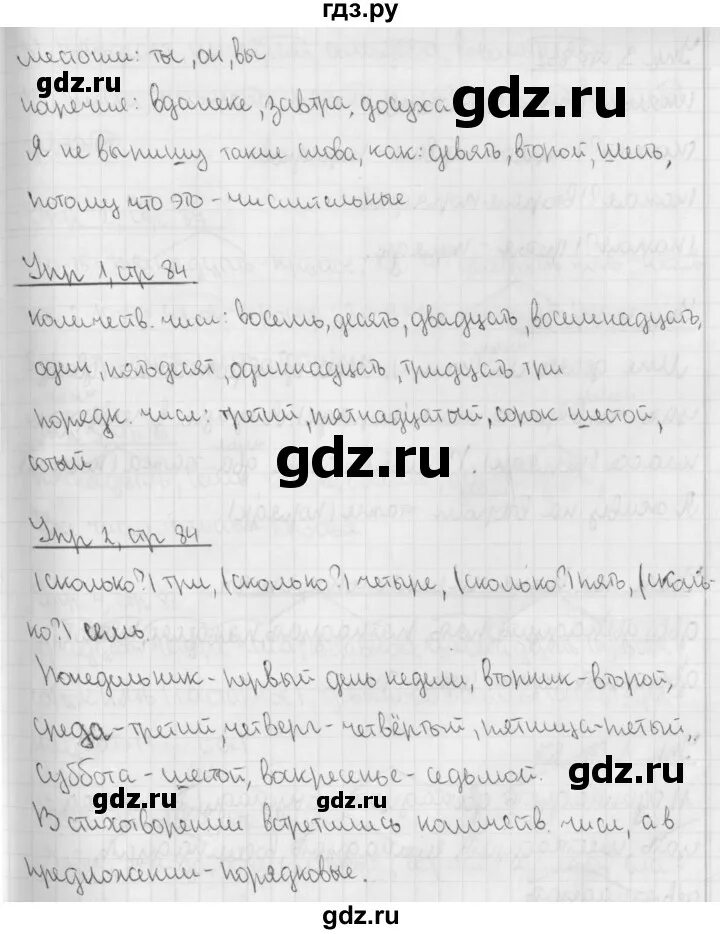 гдз.ру
местоим: ты, он, вы
gdz.ru
наречия: вдалеке, завтра, досуха
gdz.ru
Я не выпишу такие слова, как: девять, второй, шесть,
потому что это - числительные
Упр 1, стр 84
количеств. числ: восемь, десять, двадцать, восемнадцать,
один, пятьдесят, одиннадцать, тридцать три
порядк. числ: третий, пятнадцатый, сорок шестой,
сотый
gdz.ru
Упр 2, стр 84
(сколько?) три, (сколько?) четыре, (сколько?) пять, (сколь-
ко?) семь.
Понедельник - первый день недели, вторник - второй,
среда - третий, четверг - четвёртый, пятница - пятый,
суббота - шестой, воскресенье - седьмой.
gdz.ru
gdz.ru
gdz.ru
В стихотворении встретились количеств. числ, а в
предложении - порядковые.
gdz.ru